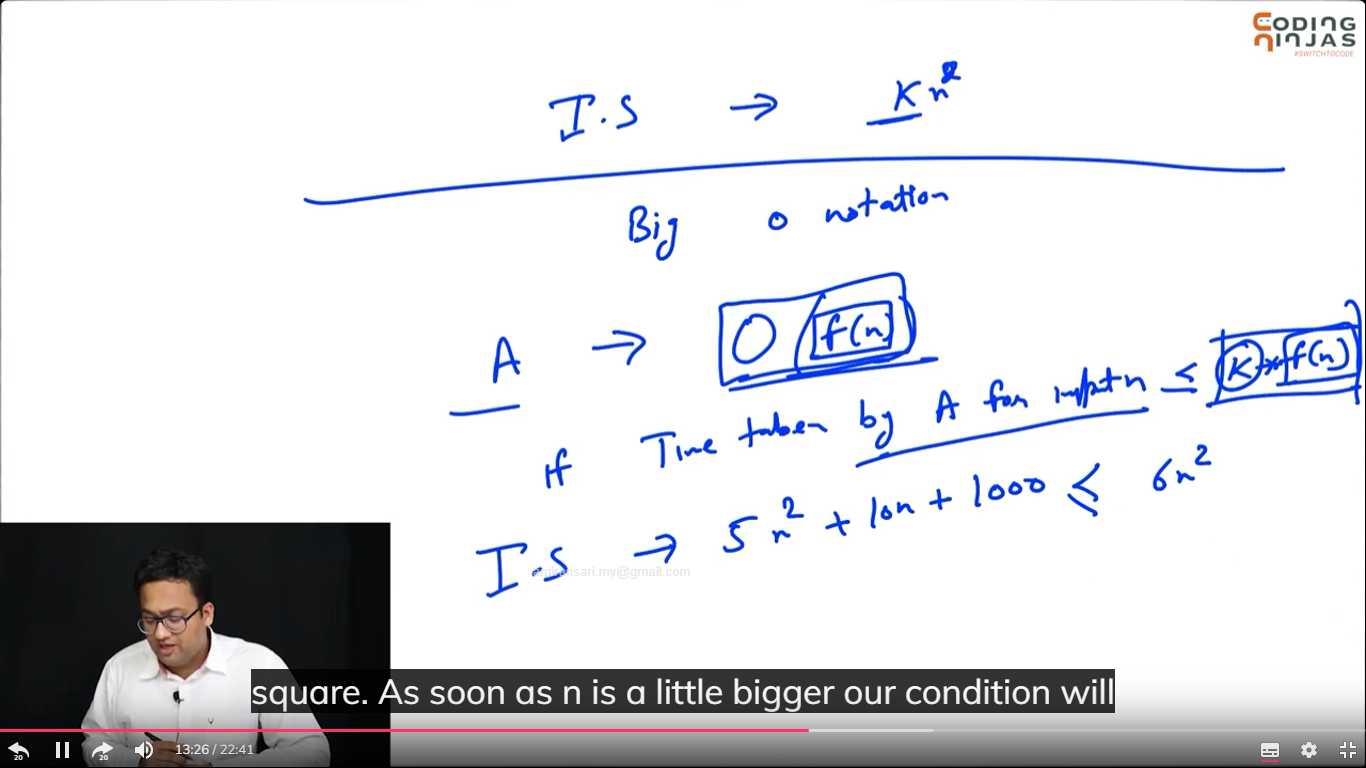 CODING
NINJAS
#SWITCHTOCODE
I.S → Kn²
Big O notation
A → O(f(n))
If Time taken by A for input n ≤ K * f(n)
I.S → 5n² + 10n + 1000 ≤ 6n²
amiransari.my@gmail.com
square. As soon as n is a little bigger our condition will
20 20 13:26 / 22:41